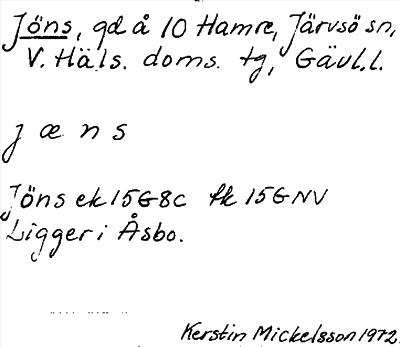 Jöns, gd å 10 Hamre, Järvsö sn,
V. Häls. doms. tg, Gävl. l.
j æ n s
Jöns ek 15G8c fk 15GNV
Ligger i Åsbo.
Kerstin Mickelsson 1972.